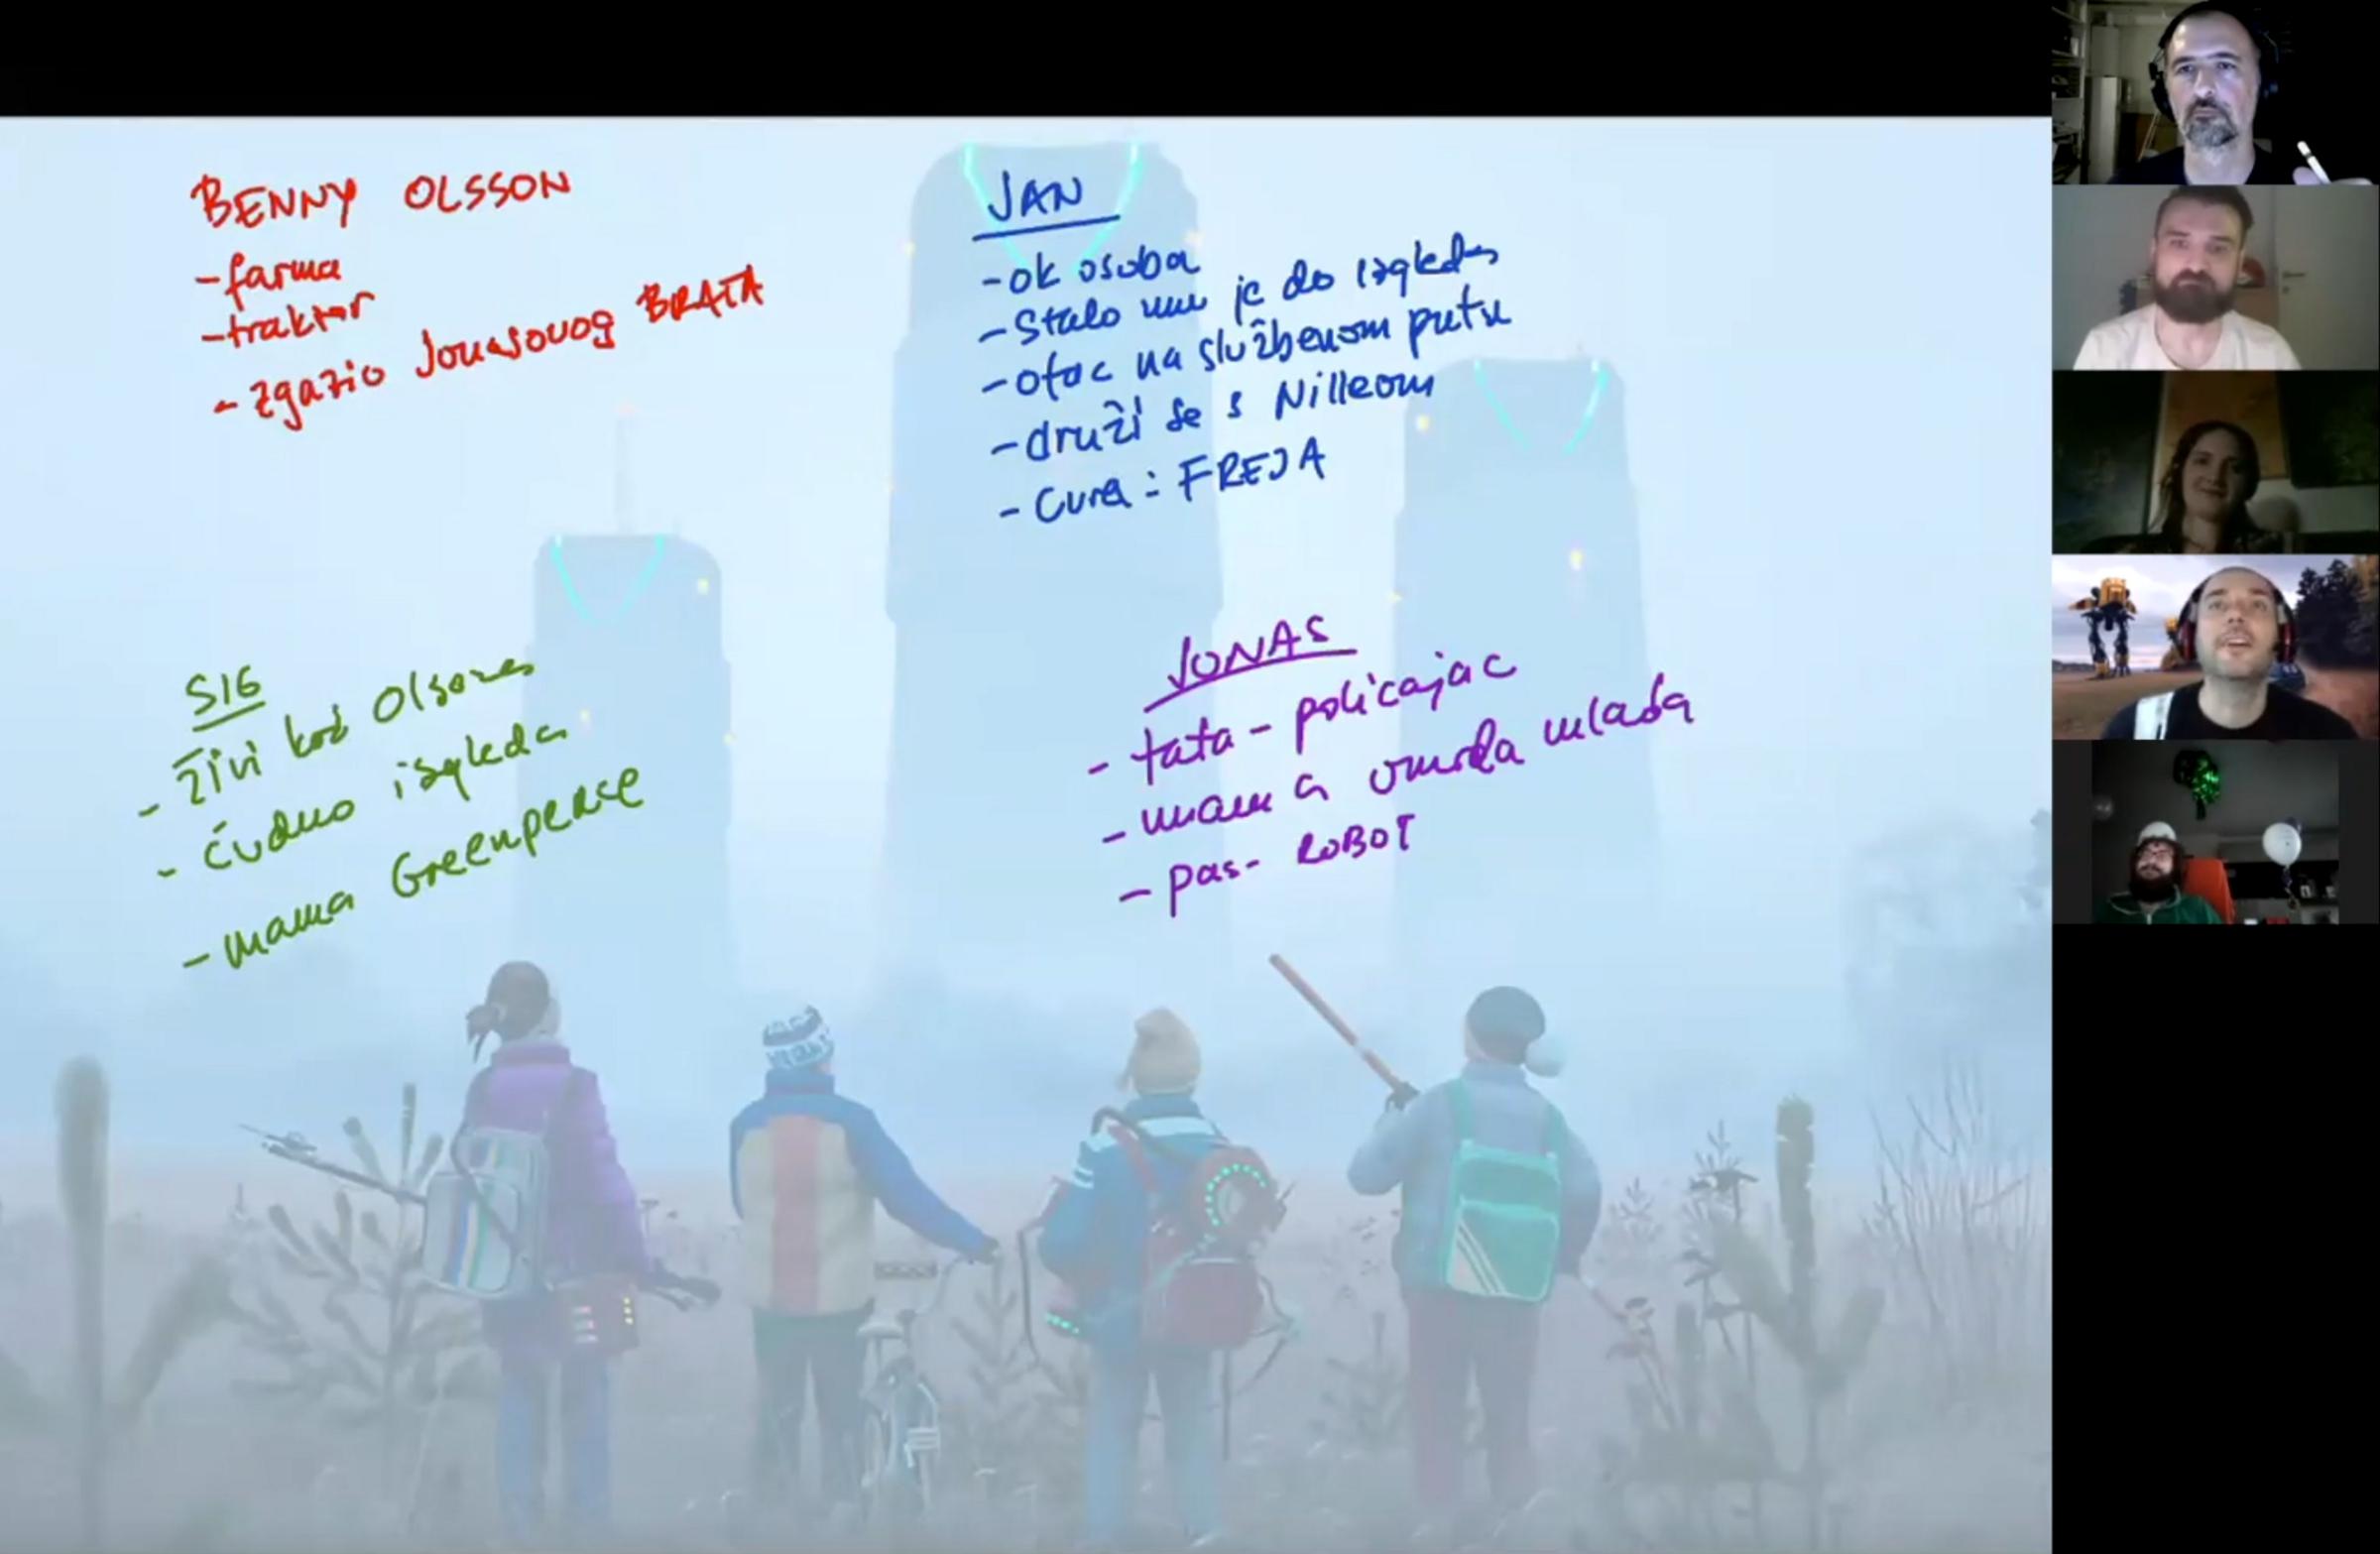 BENNY OLSSON
-farma
-traktor
- zgazio Jonasovog BRATA
JAN
-ok osoba
-Stalo mu je do izgleda
-otac na službenom putu
-druži se s Nilleom
- Cura: FREJA
SIG
- živi kod Olssona
- čudno izgleda
- mama Greenpeace
JONAS
- tata - policajac
- mama umrla mlada
- pas - ROBOT